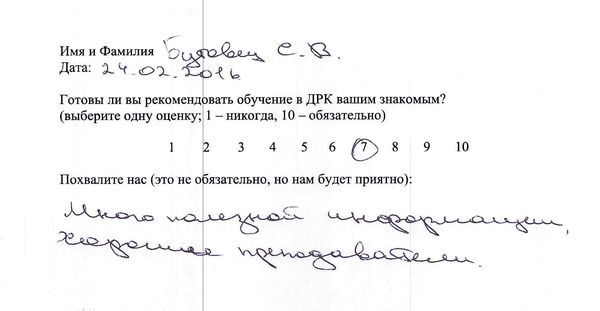 Имя и Фамилия Бутовец С. В.
Дата: 24.02.2016
Готовы ли вы рекомендовать обучение в ДРК вашим знакомым?
(выберите одну оценку; 1 – никогда, 10 – обязательно)
1 2 3 4 5 6 7 8 9 10
Похвалите нас (это не обязательно, но нам будет приятно):
Много полезной информации,
хорошие преподаватели.